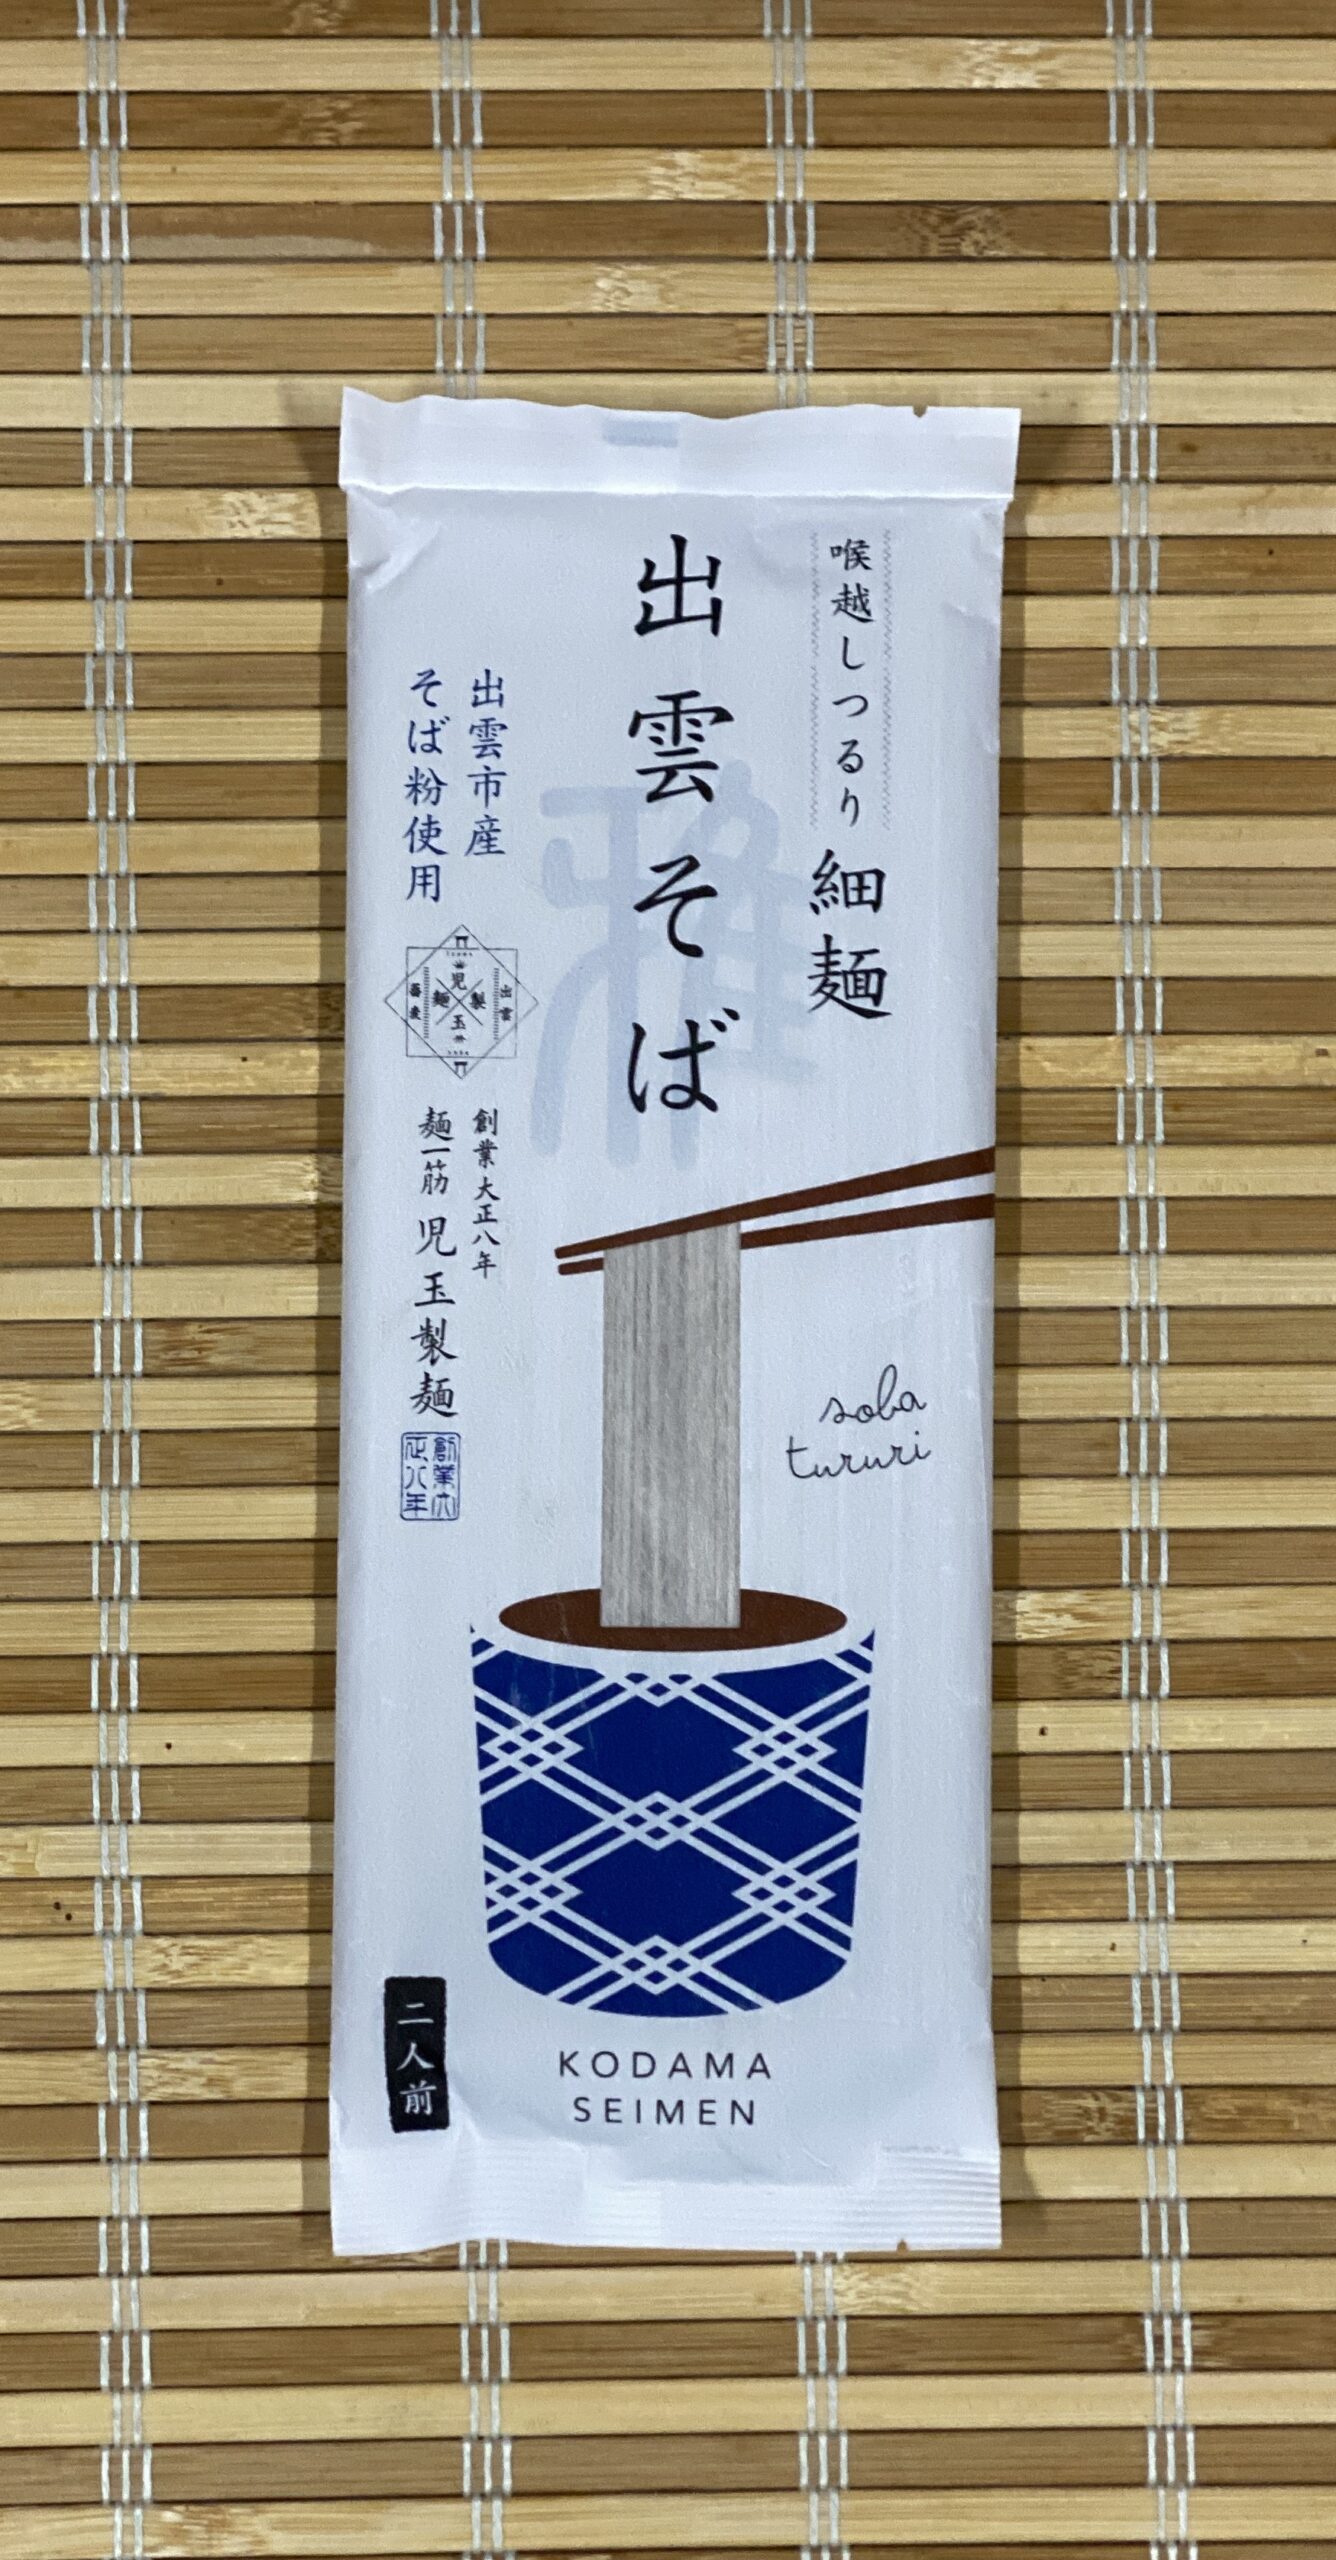 喉越しつるり
細麺
出雲そば
雅
出雲市産
そば粉使用
出雲
蕎麦
児玉製麺
創業大正八年
麺一筋 児玉製麺
創業大正八年
soba
tururi
二人前
KODAMA
SEIMEN